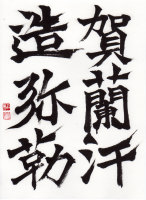 賀蘭汗
造弥勒